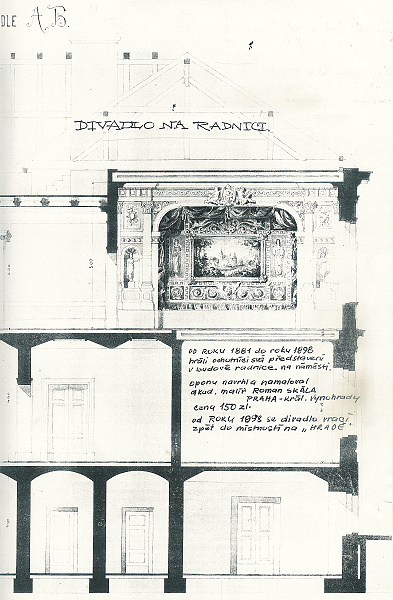 DLE A. B.
DIVADLO NA RADNICI.
OD ROKU 1881 do roku 1898
hráli ochotníci svá představení
v budově radnice na náměstí.
oponu navrhl a namaloval
akad. malíř Roman SKÁLA
PRAHA - Král. Vinohrady
cena 150 zl.
od ROKU 1898 se divadlo vrací
zpět do místností na „HRADĚ"